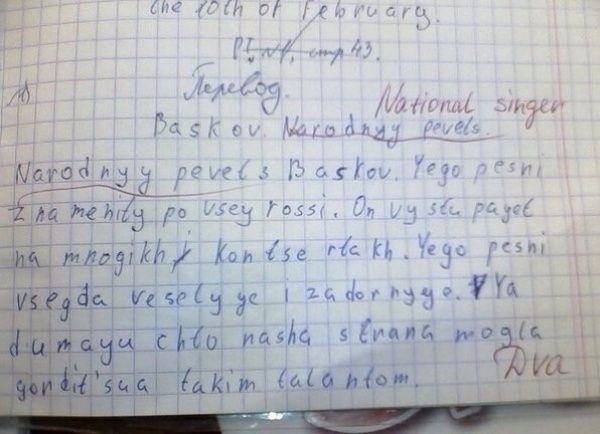 the 10th of February.
P1, №1, стр 43.
Перевод.
National singer
Baskov. Narodnyy pevels.
Narodnyy pevels Baskov. Yego pesni
znamenity po vsey rossi. On vystupayet
na mnogikh kontsertakh. Yego pesni
vsegda veselyye i zadornyye. Ya
dumayu chto nasha strana mogla
gordit'sua takim talantom.
Dva